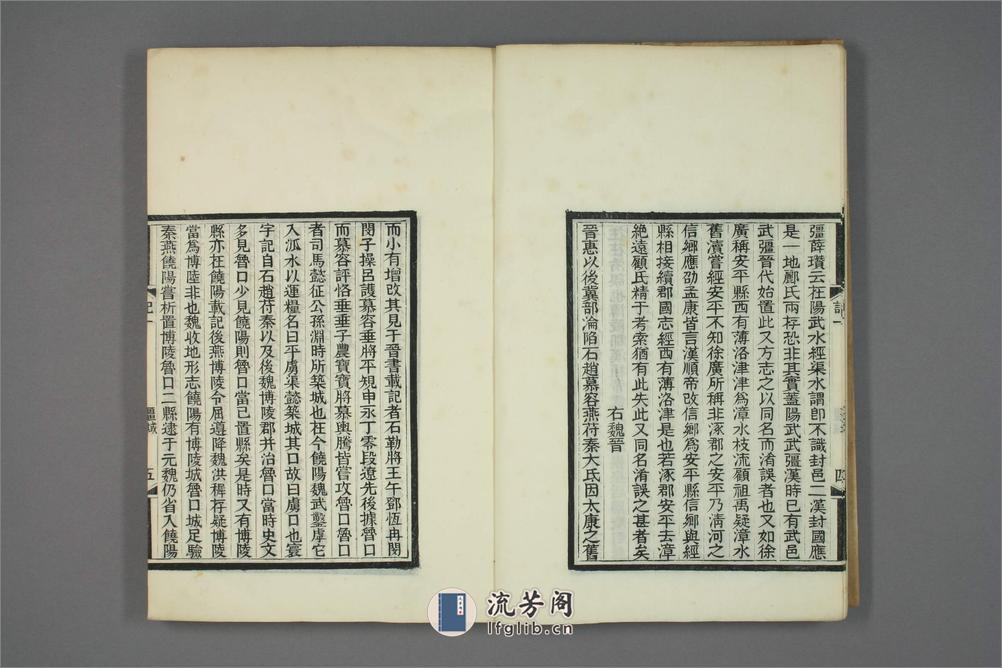 彊薛瓚云在陽武水經渠水謂卽不識封邑二漢封國應
是一地酈氏兩存恐非其實蓋陽武武彊漢時已有武邑
武彊晉代始置此又方志之以同名而淆誤者也又如徐
廣稱安平縣西有薄洛津津爲漳水枝流顧祖禹疑漳水
舊瀆嘗經安平不知徐廣所稱非涿郡之安平乃淸河之
信鄉應劭孟康皆言漢順帝改信鄉爲安平縣信鄉與經
縣相接續郡國志經西有薄洛津是也若涿郡安平去漳
絶遠顧氏精于考索猶有此失此又同名淆誤之甚者矣
右魏晉
晉惠以後冀部淪陷石趙慕容燕苻秦大氐因太康之舊
記一
四
而小有增改其見于晉書載記者石勒將王午鄧恆冉閔
閔子操呂護慕容垂將平規申永丁零段遼先後據魯口
而慕容評恪垂垂子農寶寶將慕輿騰皆嘗攻魯口魯口
者司馬懿征公孫淵時所築城也在今饒陽魏武鑿虖它
入泒水以運糧名曰平虜渠懿築城其口故曰虜口也寰
宇記自石趙苻秦以及後魏博陵郡并治魯口當時史文
多見魯口少見饒陽則魯口當已置縣矣是時又有博陵
縣亦在饒陽載記後燕博陵令屈遵降魏洪稺存疑博陵
當爲博陸非也魏收地形志饒陽有博陵城魯口城足驗
秦燕饒陽嘗析置博陵魯口二縣逮于元魏仍省入饒陽
記一
疆域
五
流芳阁
lfglib.cn